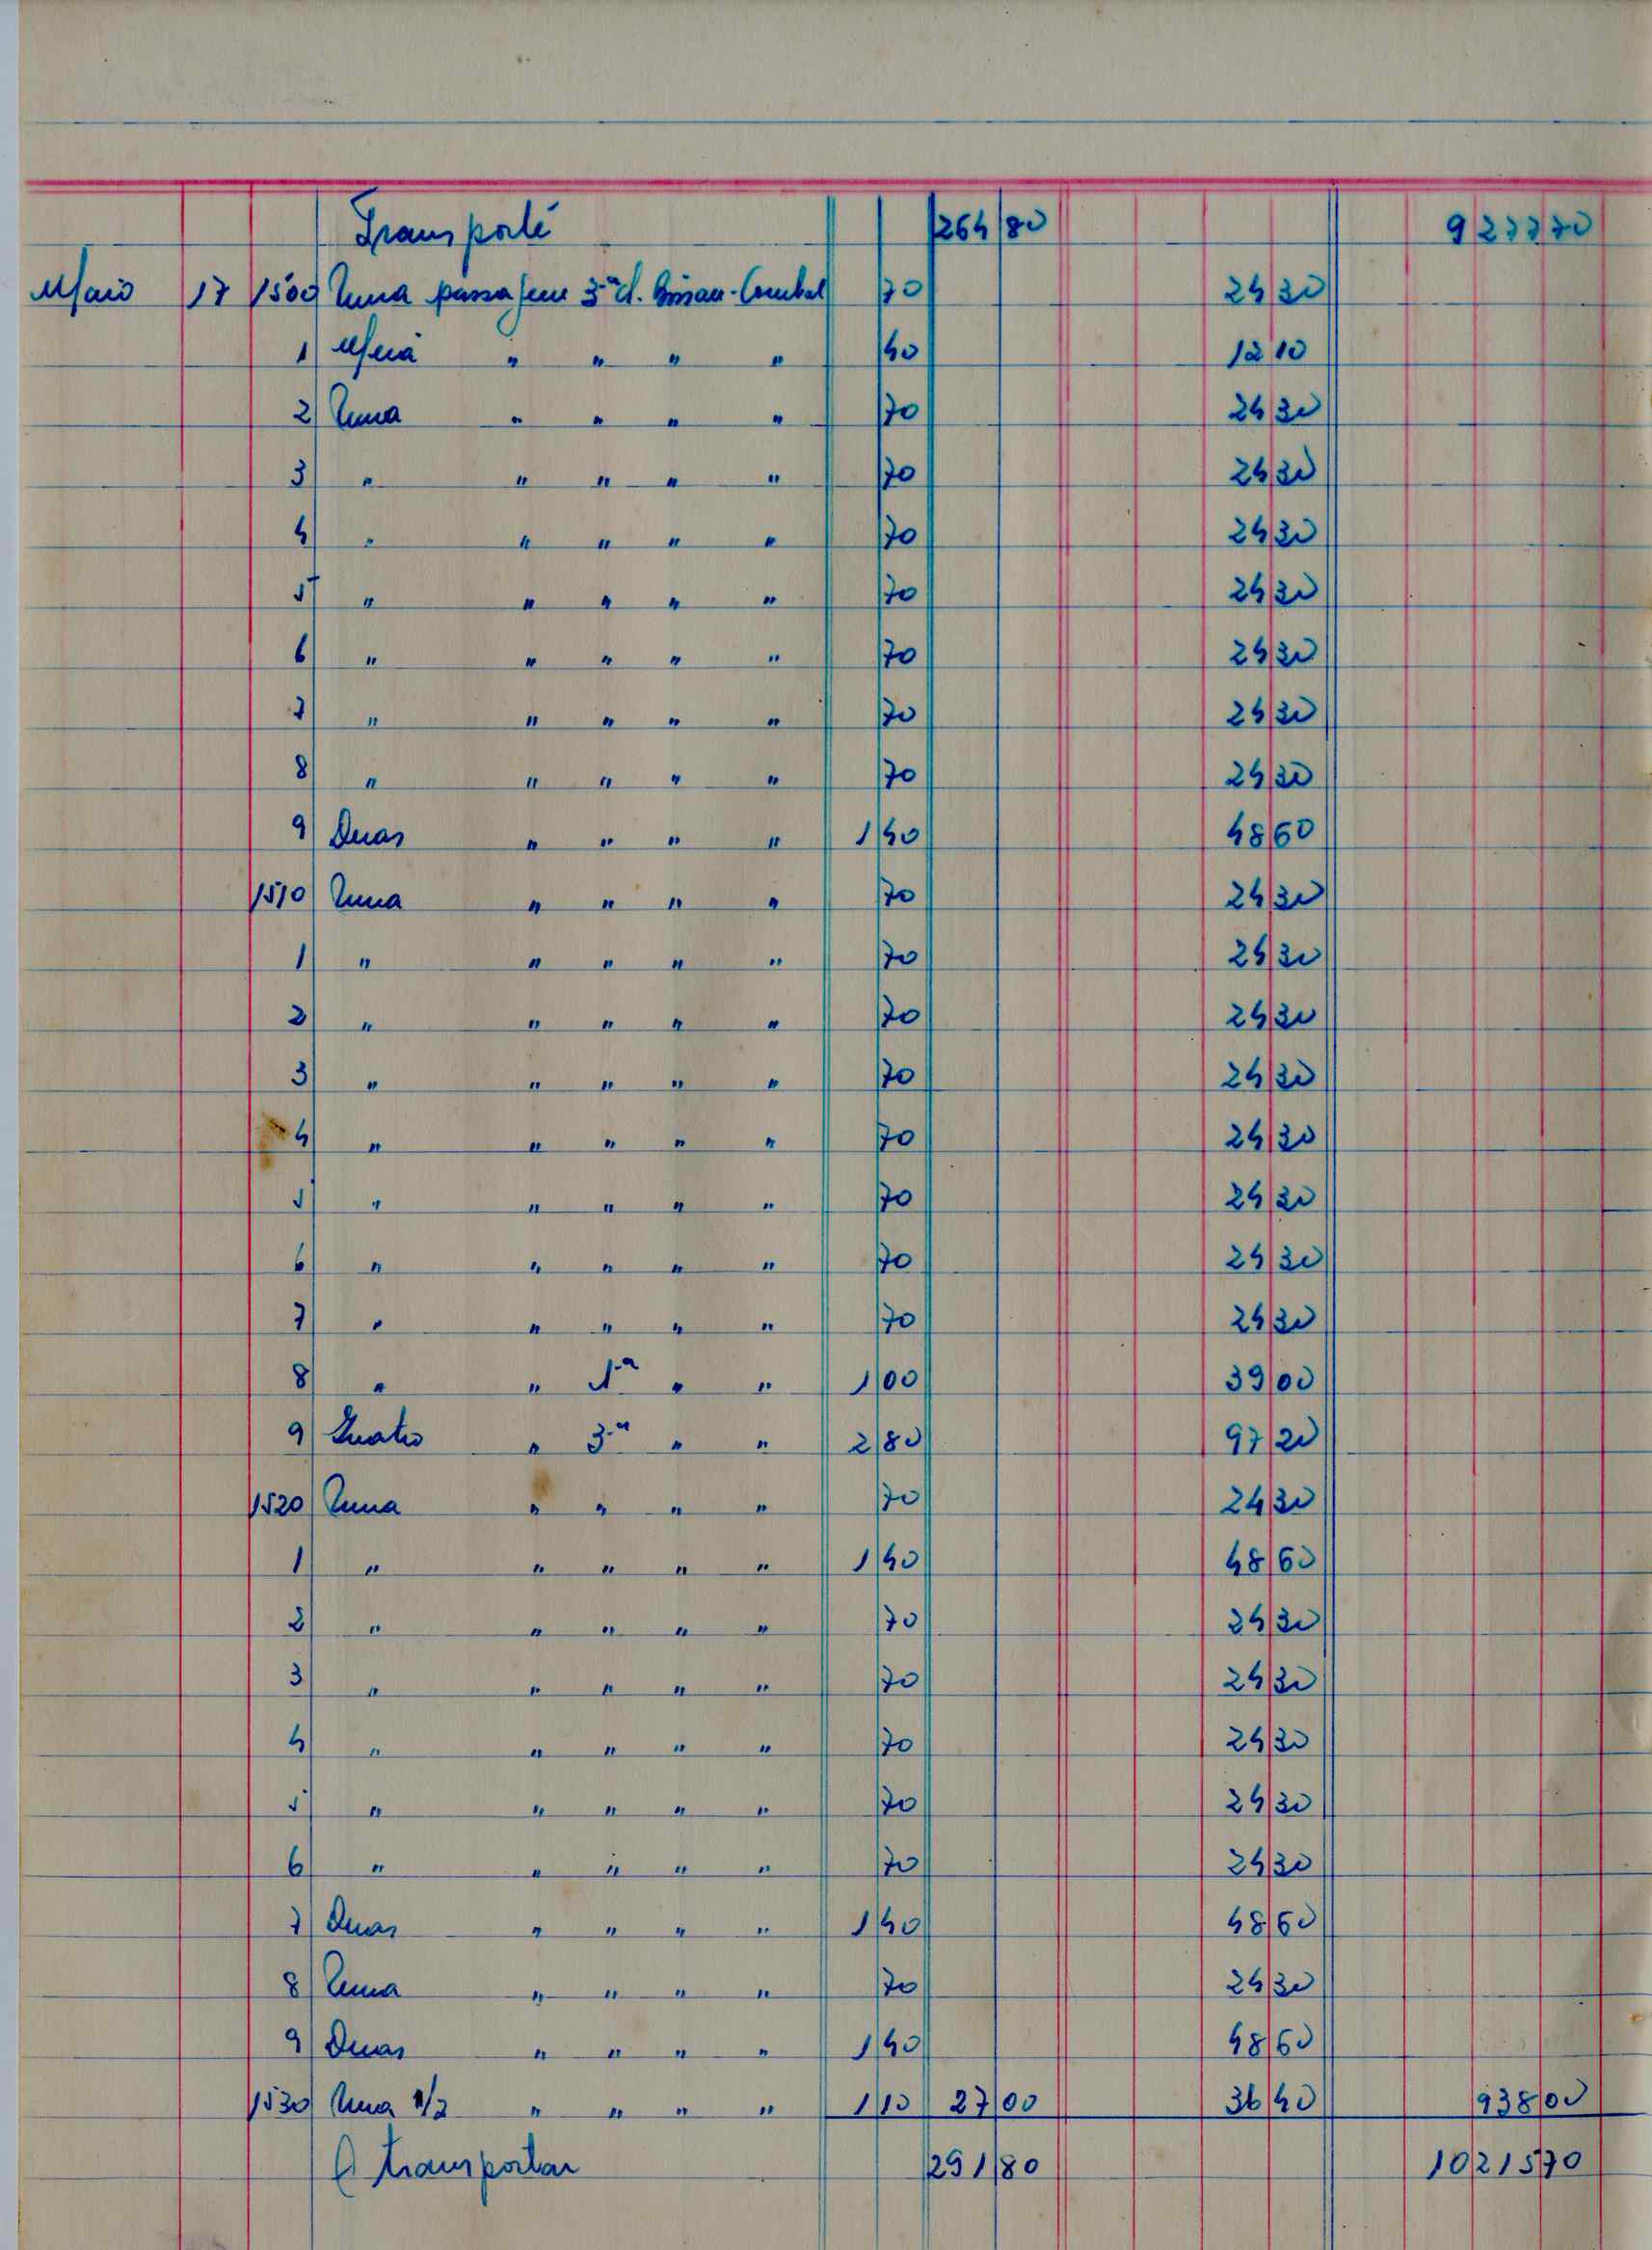 Transporte 264 80 9277 70
Maio 17 1500 Uma passagem 3.ª cl. Bissau-Cumbal 70 24 30
1 Meia " " " " 40 12 10
2 Uma " " " " 70 24 30
3 " " " " " 70 24 30
4 " " " " " 70 24 30
5 " " " " " 70 24 30
6 " " " " " 70 24 30
7 " " " " " 70 24 30
8 " " " " " 70 24 30
9 Duas " " " " 1 40 48 60
1510 Uma " " " " 70 24 30
1 " " " " " 70 24 30
2 " " " " " 70 24 30
3 " " " " " 70 24 30
4 " " " " " 70 24 30
5 " " " " " 70 24 30
6 " " " " " 70 24 30
7 " " " " " 70 24 30
8 " " 1.ª " " 1 00 39 00
9 Quatro " 3.ª " " 2 80 97 20
1520 Uma " " " " 70 24 30
1 " " " " " 1 40 48 60
2 " " " " " 70 24 30
3 " " " " " 70 24 30
4 " " " " " 70 24 30
5 " " " " " 70 24 30
6 " " " " " 70 24 30
7 Duas " " " " 1 40 48 60
8 Uma " " " " 70 24 30
9 Duas " " " " 1 40 48 60
1530 Uma 1/2 " " " " 1 10 27 00 36 40 938 00
A transportar 291 80 10215 70